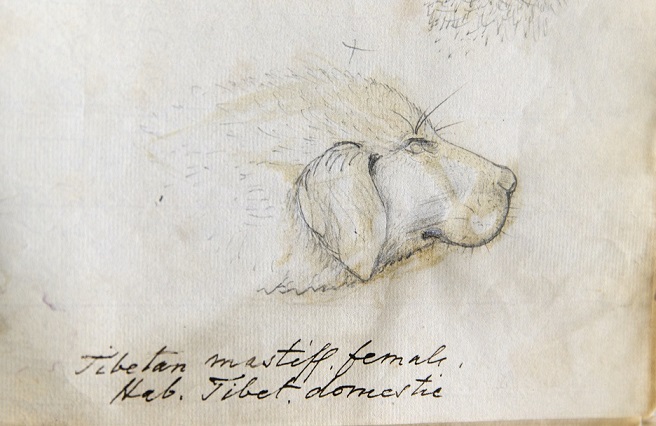 Tibetan mastiff, female.
Hab. Tibet. domestic